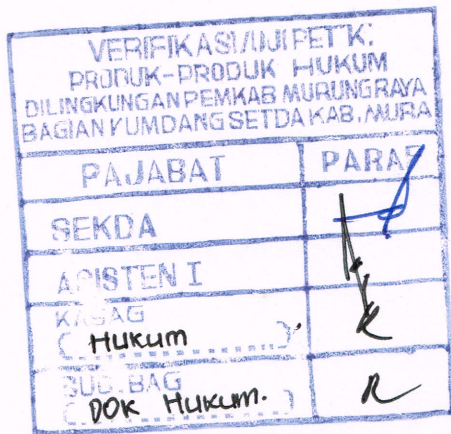 VERIFIKASI/UJI PETIK:
PRODUK-PRODUK HUKUM
DILINGKUNGAN PEMKAB MURUNG RAYA
BAGIAN KUMDANG SETDA KAB. MURA
PAJABAT PARAF
SEKDA
ASISTEN I
KABAG
( Hukum )
SUB.BAG
( DOK Hukum. )